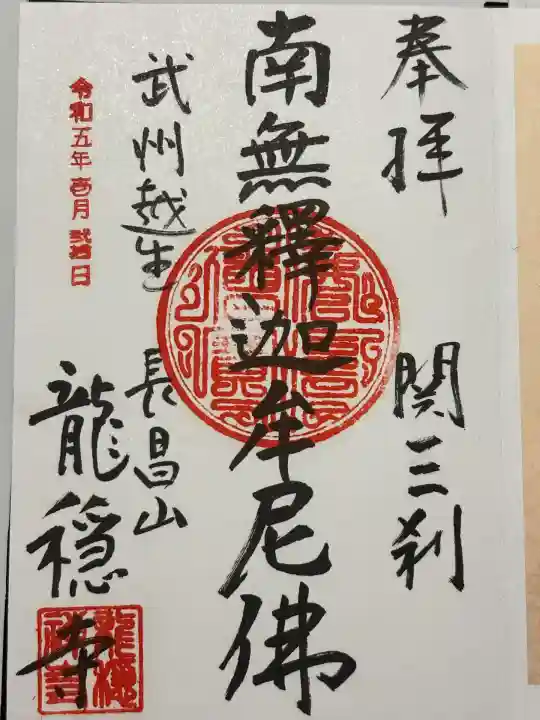 奉拝 関三刹
南無釋迦牟尼佛
武州越生 長昌山
龍穏寺
令和五年壱月弐拾日